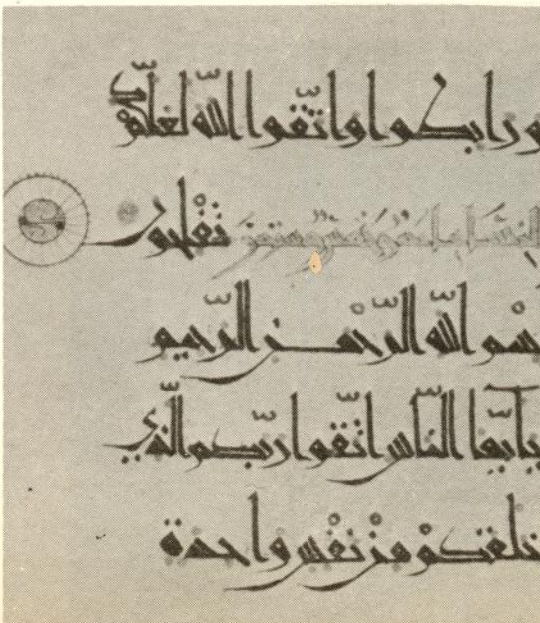 ورابطوا واتّقوا اللّه لعلّكم
النساء تفلحون
بسم اللّه الرّحمن الرّحيم
يأيّها النّاس اتّقوا ربّكم الّذي
خلقكم من نفس واحدة